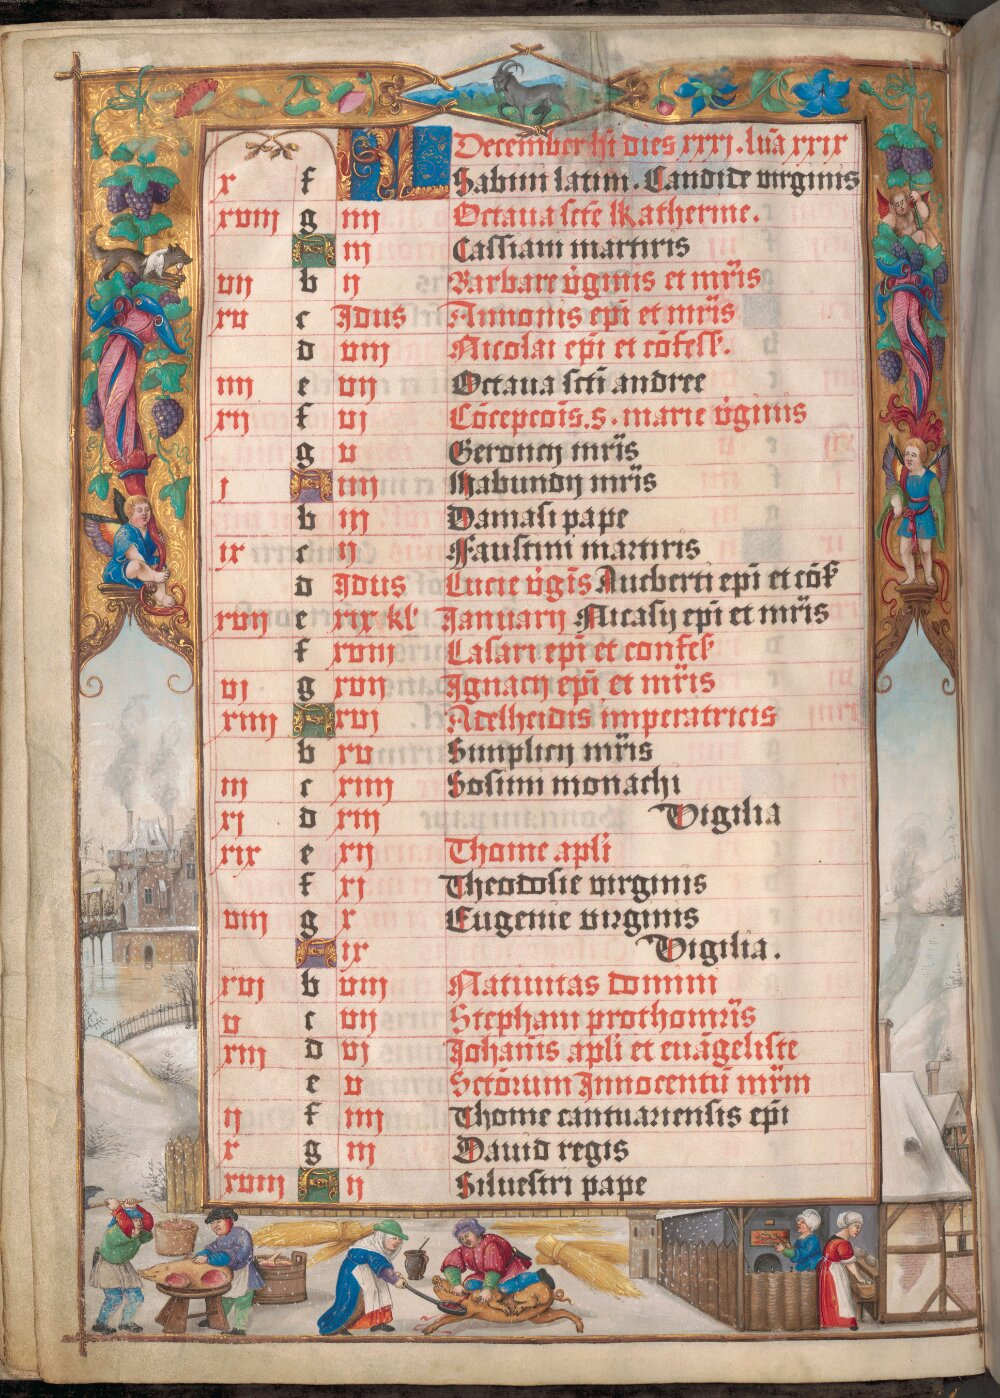 KL December h̄t dies xxxj. luā xxix
x f Sabini latini. Candide virginis
xviij g iiij Octaua scte Katherine.
A iij Cassiani martiris
vij b ij Barbare v̄ginis et mr̄is
xv c Idus Annonis ep̄i et mr̄is
d viij Nicolai ep̄i et cōfess.
iiij e vij Octaua sc̄ti andree
xij f vj Cōcepcōis. s. marie v̄ginis
g v Gereonij mr̄is
j A iiij Habundij mr̄is
b iij Damasi pape
ix c ij Faustini martiris
d Idus Lucie v̄gīs Aucberti ep̄i et cōf
xvij e xix kl' Januarij Nicasij ep̄i et mr̄is
f xviij Lasari ep̄i et confess
vj g xvij Ignacij ep̄i et mr̄is
xiiij A xvj Adelheidis imperatricis
b xv Simplicij mr̄is
iij c xiiij Sosimi monachi
xj d xiij Vigilia
xix e xij Thome apl̄i
f xj Theodosie virginis
viij g x Eugenie virginis
A ix Vigilia.
xvj b viij Natiuitas domini
v c vij Stephani prothomr̄is
xiij d vj Johan̄is apl̄i et euāgeliste
e v Sctōrum Innocentū mr̄m
ij f iiij Thome cantuariensis ep̄i
x g iij Dauid regis
xviij A ij Siluestri pape